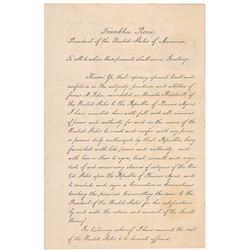 Franklin Pierce
President of the United States of America,
To all to whom these presents shall come, Greeting:
Know Ye, that reposing special trust and
confidence in the integrity, prudence and abilities of
James A. Peden, Resident of the
United States to the Republic of Buenos Ayres
I have invested him with full and all manner
of power and authority for and in the name of the
United States to meet and confer with any person
or persons duly authorized by that Republic being
furnished with like power and authority, and
with him or them to agree, treat,
of and concerning
States and the Republic of Buenos Ayres; and
to conclude and sign a Convention or Conventions
touching the premises; transmitting the same to the
President of the United States for his ratification
by and with the advice and consent of the Senate
thereof.
In testimony whereof I have caused the seal
of the United States to be hereunto affixed.